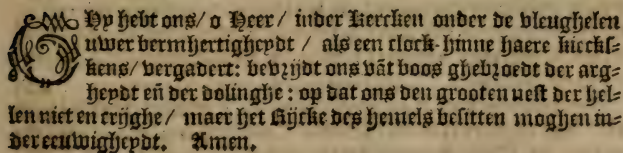 GHy hebt ons/ o Heer/ inder Kercken onder de vleughelen
uwer bermhertigheydt / als een clock-hinne haere kieckſ-
kens/ vergadert: bevrijdt ons vāt boos ghebroedt der arg-
heydt eñ der dolinghe: op dat ons den grooten neſt der hel-
len niet en crijghe/ maer het Rijcke des hemels beſitten moghen in-
der eeuwigheydt. Amen.